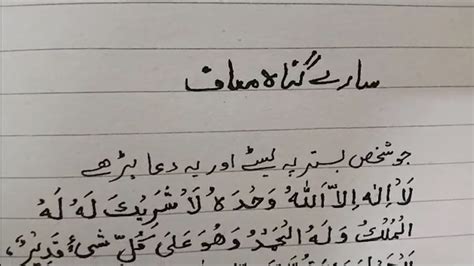 سارے گناہ معاف
جو شخص بستر پہ لیٹے اور یہ دعا پڑھے
لَا اِلٰهَ اِلَّا اللّٰهُ وَحْدَهُ لَا شَرِيْكَ لَهُ لَهُ
الْمُلْكُ وَلَهُ الْحَمْدُ وَهُوَ عَلٰى كُلِّ شَیْءٍ قَدِيْرٌ،